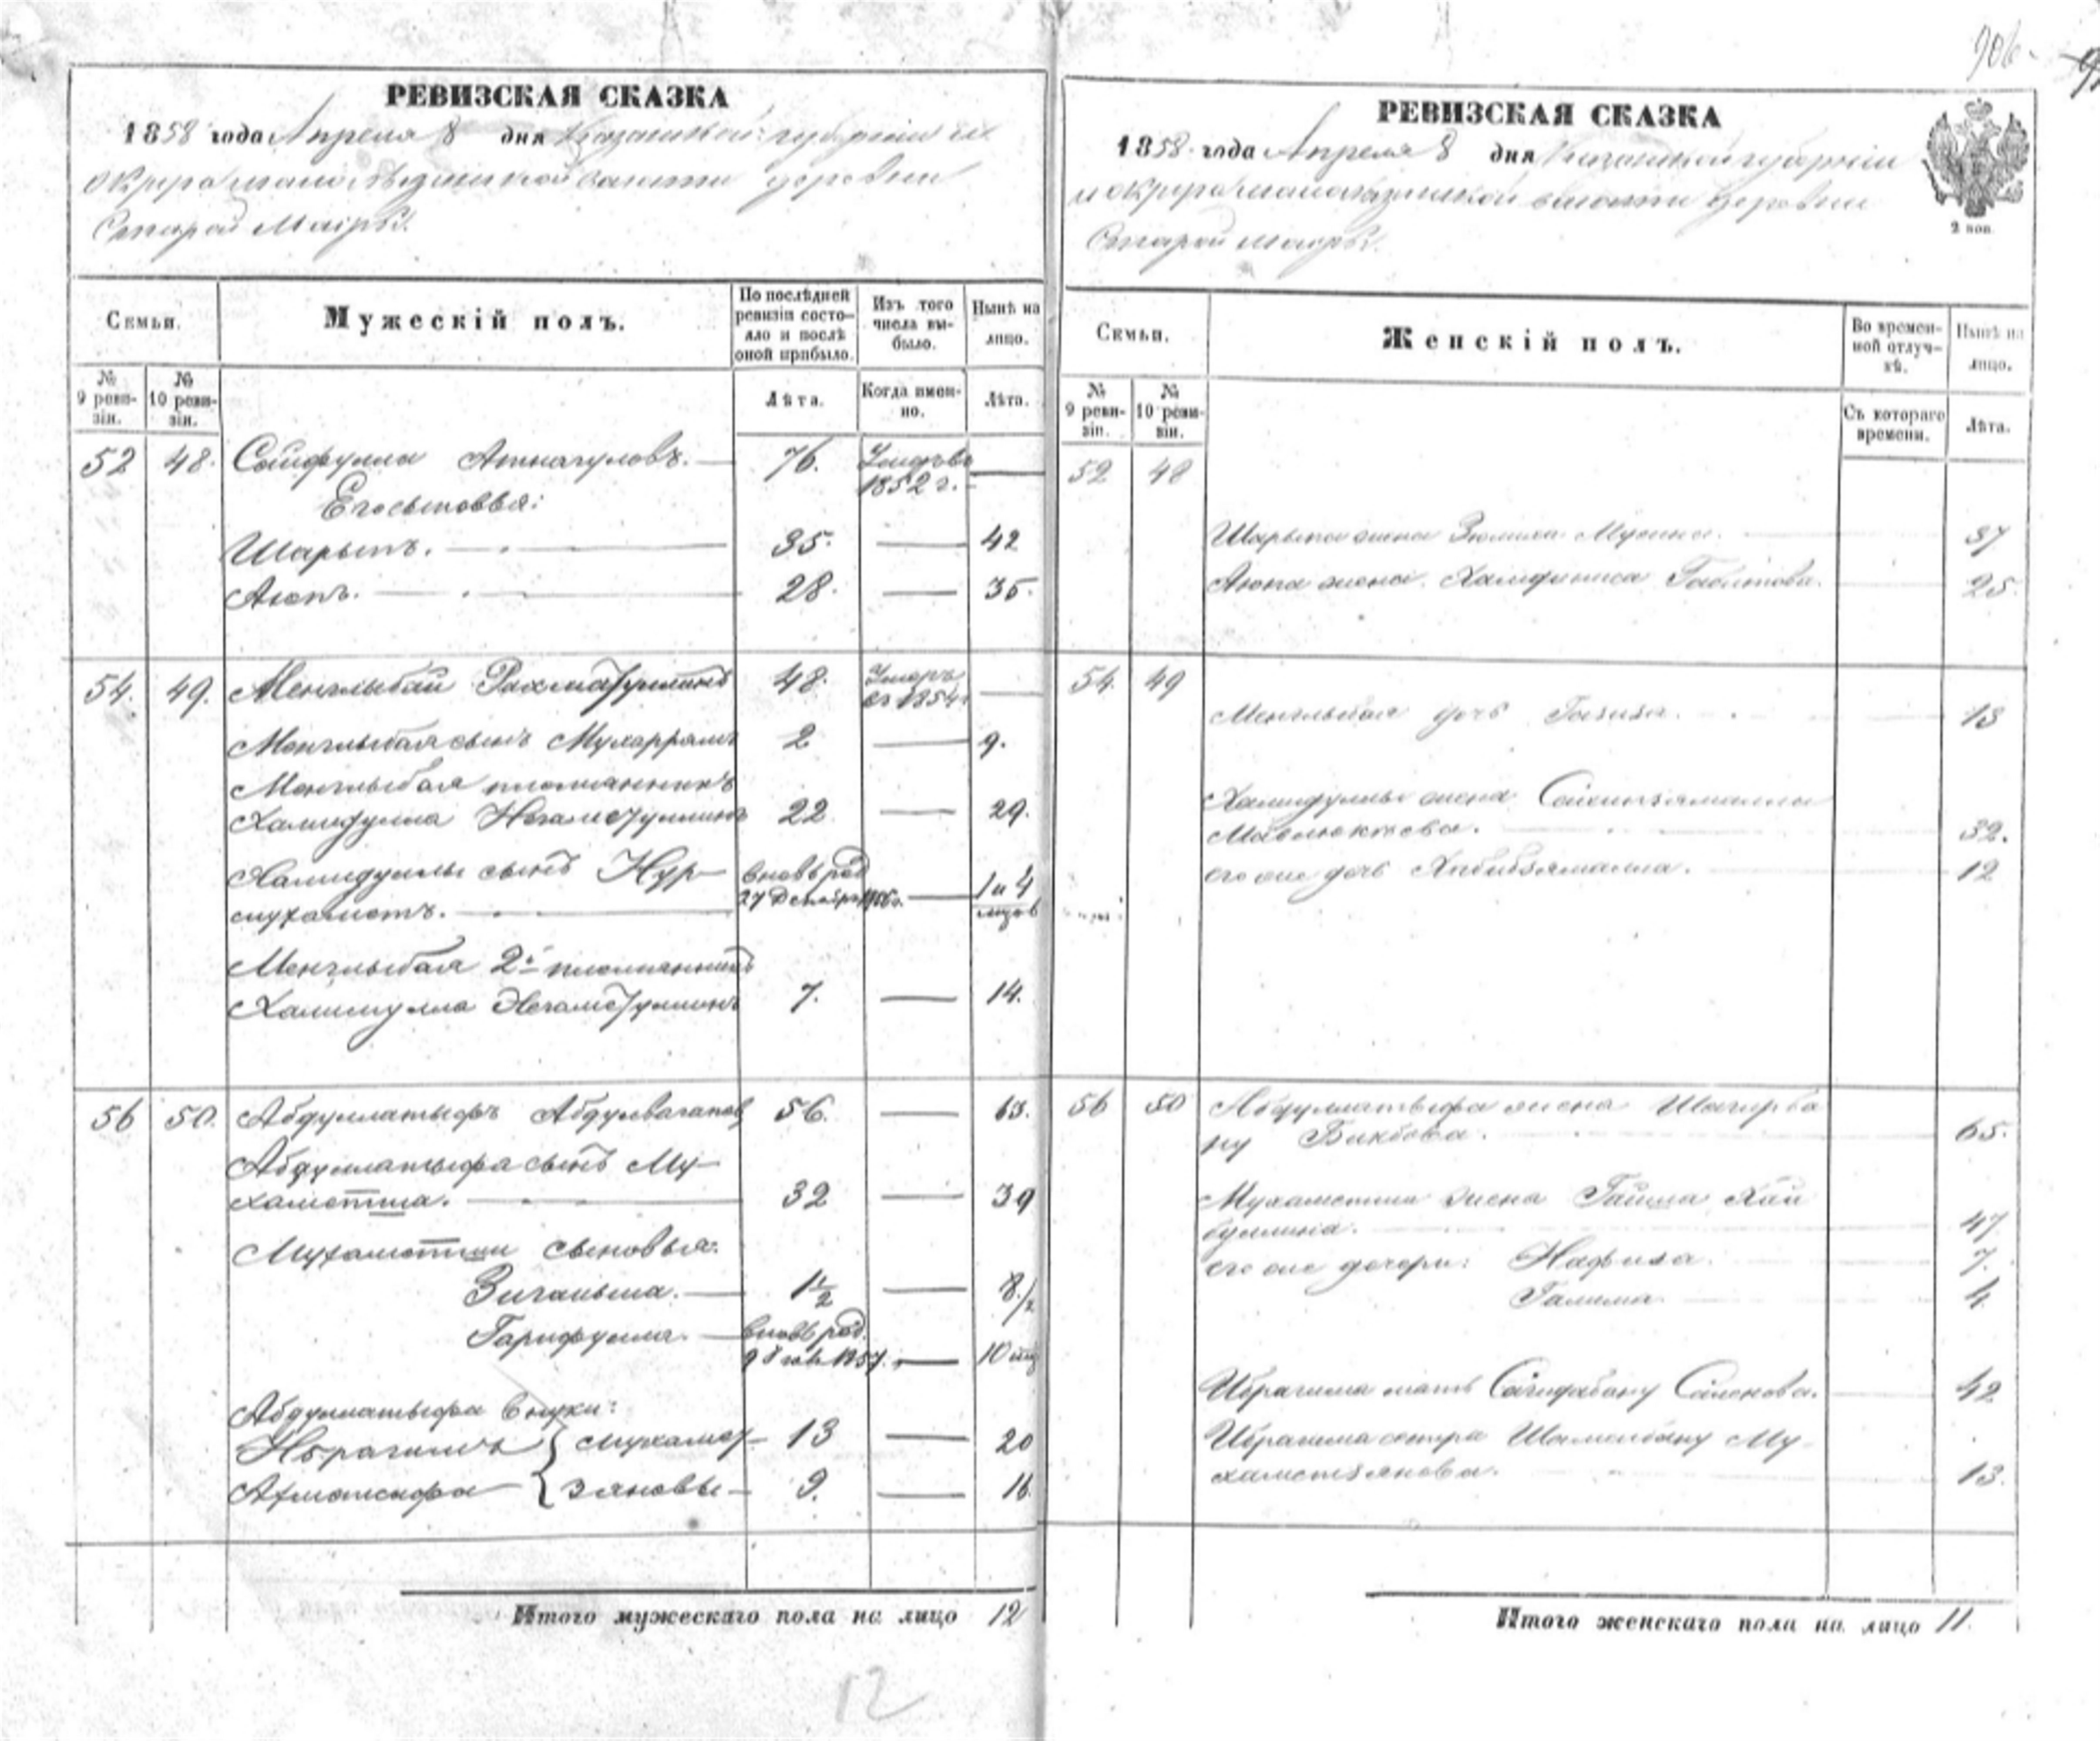 906
РЕВИЗСКАЯ СКАЗКА
1858 года Апреля 8 дня Казанской губерніи и
округа деревни
Старой
Семьи.
Мужескій полъ.
По послѣдней ревизіи состо-
яло и послѣ
оной прибыло.
Изъ того
числа вы-
было.
Нынѣ на
лицо.
№
9 реви-
зіи.
№
10 реви-
зіи.
Лѣта.
Когда имен-
но.
Лѣта.
52 48. Сайфулла Атнагуловъ. 76. Умеръ въ
1852 г.
Его сыновья:
Шарыпъ. 35. 42
Аюпъ. 28. 35.
54. 49. Менглыбай Рахматуллинъ 48. Умеръ
въ 1854
Менглыбая сынъ Мухаррямъ 2 9.
Менглыбая племянникъ
Халидулла Негаметуллинъ 22 29.
Халидуллы сынъ Нур-
мухаметъ. вновь род
27 Декабря 1 и 4
мѣсяц
Менглыбая 2й племянникъ
Халиулла Негаметуллинъ 7. 14.
56 50. Абдуллатыфъ Абдулвагапов 56. 63.
Абдуллатыфа сынъ Му-
хаметша. 32 39
Мухаметши сыновья:
Зиганьша. 1 1/2 8 1/2
Гарифулла. вновь род.
1857. 10 мѣ
Абдуллатыфа внуки:
Ибрагимъ } мухамет- 13 20
Ахметсафа } зяновы 9. 16
Итого мужескаго пола на лицо 12
12
РЕВИЗСКАЯ СКАЗКА
1858 года Апреля 8 дня Казанской губерніи
и округа волости деревни
Старой
2 коп.
Семьи.
Женскій полъ.
Во времен-
ной отлуч-
кѣ.
Нынѣ на
лицо.
№
9 реви-
зіи.
№
10 реви-
зіи.
Съ котораго
времени.
Лѣта.
52 48
Шарыпа жена Зюлиха Мусина. 37
Аюпа жена Габитова. 25.
54. 49
Менглыбая дочь Газиза. 18
Халидуллы жена
Мавлюкеева. 32.
его же дочь Хабибзямалла. 12
56 50 Абдуллатыфа жена Шагирба
ну Бикбова. 65.
Мухаметши жена Гайша Хай
буллина. 47
его же дочери: Нафиза. 7.
Галима 4
Ибрагима мать 42
Ибрагима сестра Му-
хаметзянова. 13.
Итого женскаго пола на лицо 11.